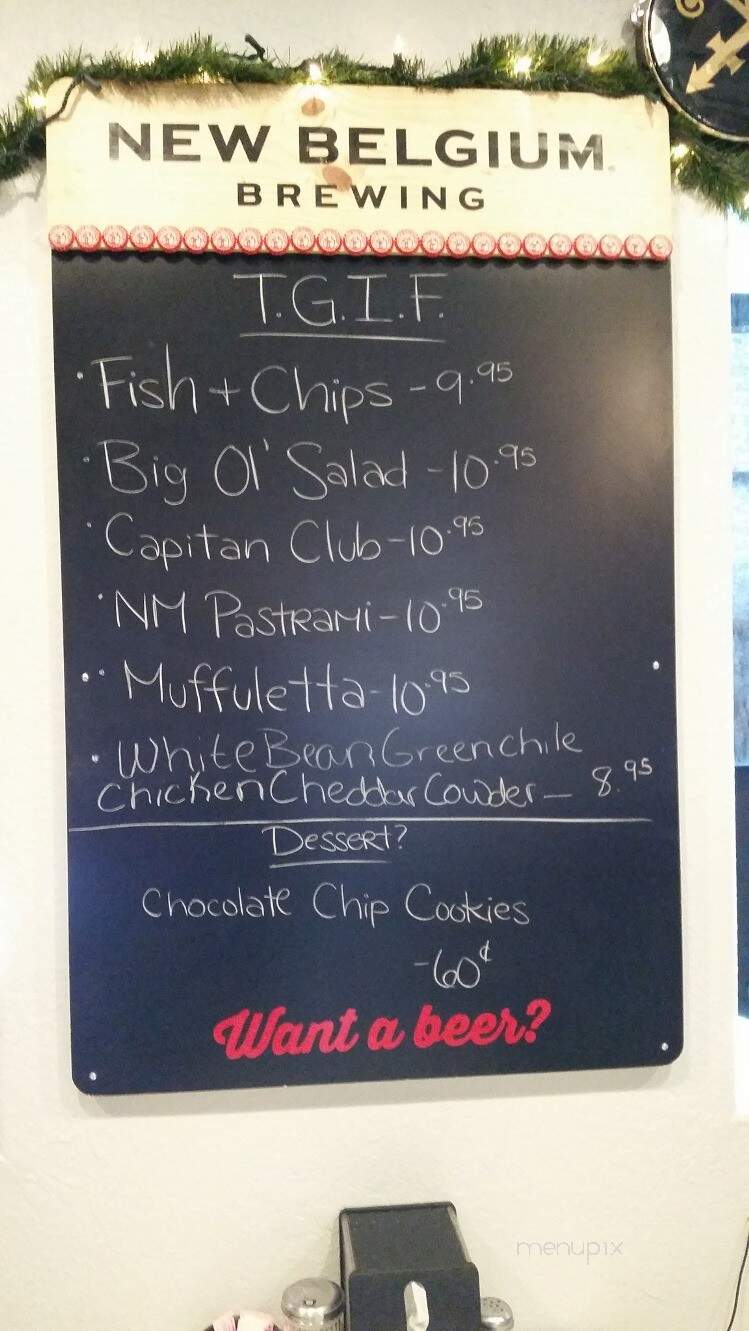 NEW BELGIUM
BREWING
T.G.I.F.
· Fish + Chips - 9.95
· Big Ol' Salad - 10.95
· Capitan Club - 10.95
· NM Pastrami - 10.95
· Muffuletta - 10.95
· White Bean Green chile
Chicken Cheddar Cowder - 8.95
Dessert?
Chocolate Chip Cookies
- 60¢
Want a beer?
menupix